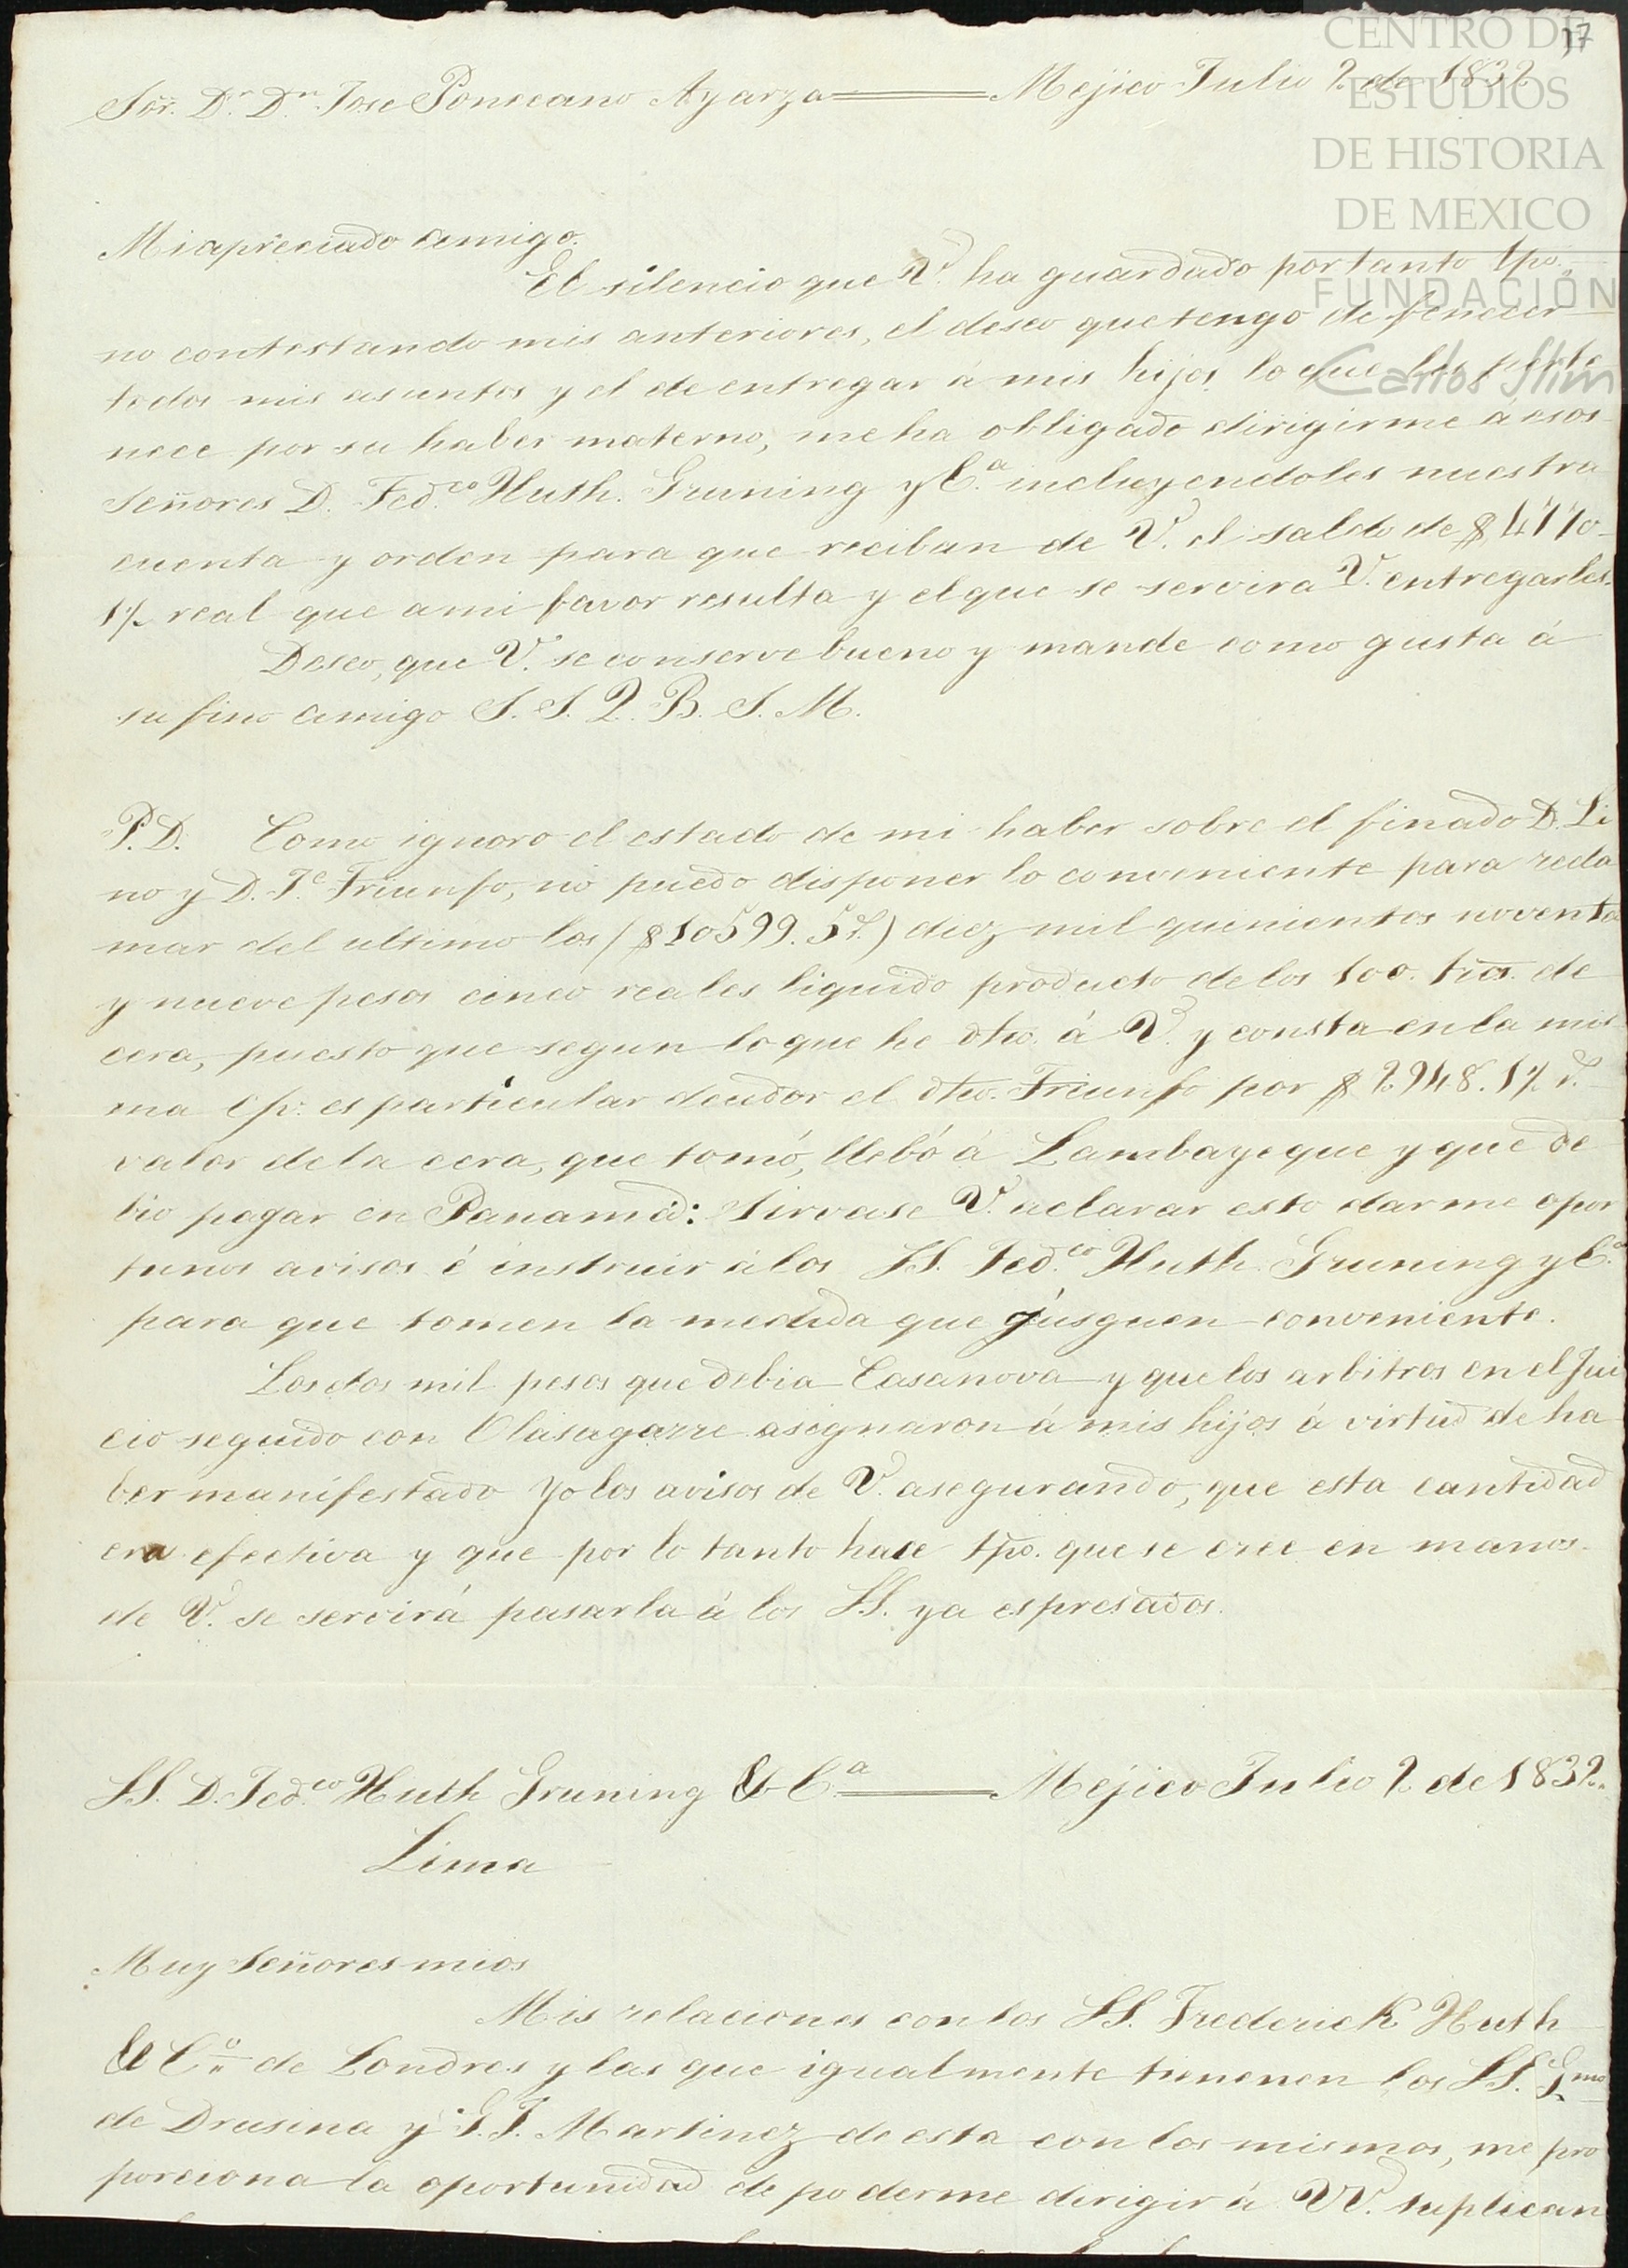 17
CENTRO DE
ESTUDIOS
DE HISTORIA
DE MEXICO
FUNDACIÓN
Carlos Slim
Sör. Dr. Dn. Jose Ponseano Ayarza Mejico Julio 2 de 1832
Mi apreciado amigo.
El silencio que V. ha guardado por tanto tpo.
no contestando mis anteriores, el deseo que tengo de fenecer
todos mis asuntos y el de entregar á mis hijos lo que les perte
nece por su haber materno, me ha obligado dirigirme á esos
Señores D. Fedco. Huth. Gruning y Ca. incluyendoles nuestra
cuenta y orden para que reciban de V. el saldo de $
real que a mi favor resulta y el que se servira V. entregarles.
Deseo, que V. se conserve bueno y mande como gusta á
su fino amigo S. S. Q. B. S. M.
P. D. Como ignoro el estado de mi haber sobre el finado D. Li
no y D. Je. Triunfo, no puedo disponer lo conveniente para recla
mar del ultimo los ($10599. 5 r.) diez mil quinientos noventa
y nueve pesos cinco reales liquido producto de los 100. de
cera, puesto que segun lo que he dho. á V. y consta en la mis
ma es particular deudor el dho. Triunfo por $2948. 1½ r.
valor de la cera, que tomó, llebó á Lambayeque y que de
bio pagar en Panamá: sirvase V. aclarar esto darme opor
tunos avisos é instruir á los SS. Fedco. Huth. Gruning y Ca.
para que tomen la medida que jusguen conveniente.
Los dos mil pesos que debia Casanova y que los arbitros en el Jui
cio seguido con Olasagarre asignaron á mis hijos á virtud de ha
ber manifestado Yo los avisos de V. asegurando, que esta cantidad
era efectiva y que por lo tanto hace tpo. que se cree en manos
de V. se servirá pasarla á los SS. ya espresados.
SS. D. Fedco. Huth Gruning & Ca. Mejico Julio 2 de 1832.
Lima
Muy Señores mios
Mis relaciones con los SS. Frederick Huth
& Co. de Londres y las que igualmente tienenen los SS. Gmo
de Drusina y J. J. Martinez de esta con los mismos, me pro
porciona la oportunidad de poderme dirigir á VV. suplican